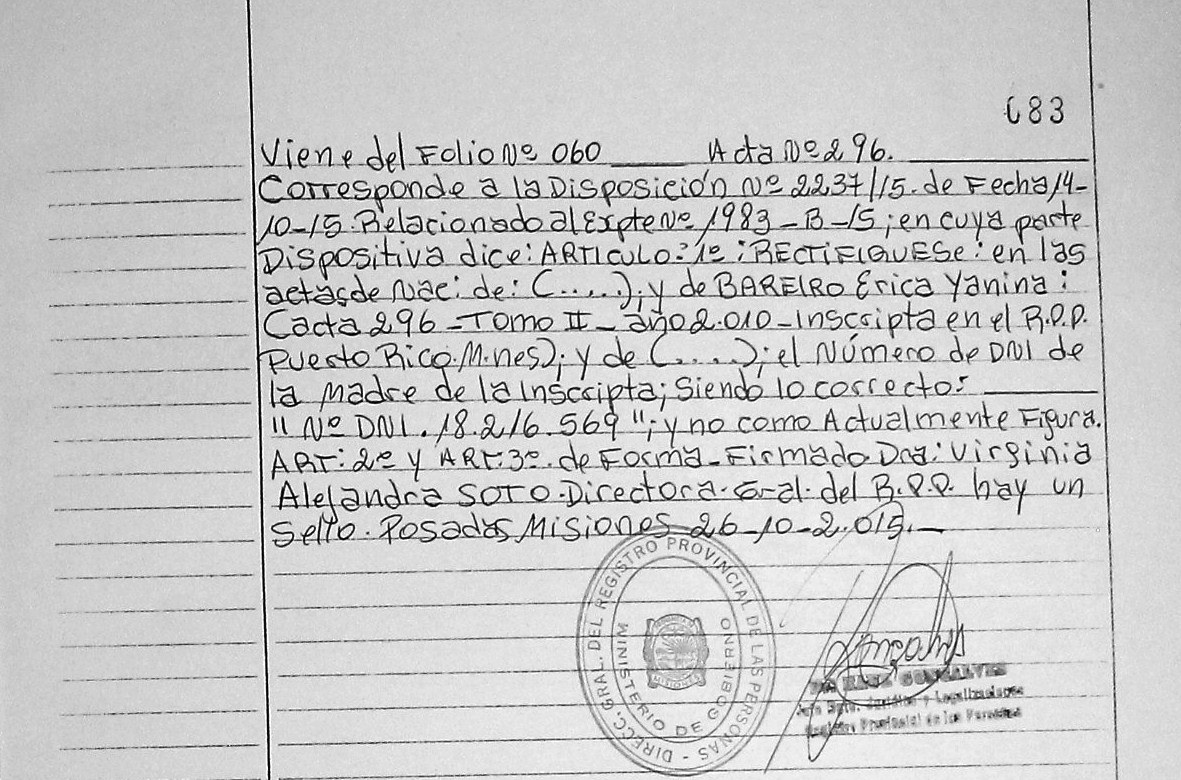 083
Viene del Folio Nº 060 Acta Nº 296.
Corresponde a la Disposición Nº 2237/15. de Fecha 14-
10-15. Relacionado al Expte Nº 1983-B-15; en cuya parte
Dispositiva dice: ARTICULO: 1º: RECTIFIQUESE: en las
actas de Nac: de: (.....); y de BAREIRO Erica Yanina:
Cacta 296 - TOMO II - año 2.010 - Inscripta en el R.P.P.
Puerto Rico. M.nes); y de (....); el Número de DNI de
la Madre de la Inscripta; Siendo lo correcto:
"Nº DNI. 18.216.569"; y no como Actualmente Figura.
ART: 2º y ART: 3º. de Forma - Firmado Dra: Virginia
Alejandra SOTO. Directora. Gral. del R.P.P. hay un
Sello. Posadas Misiones 26-10-2.015.
DIRECC. GRAL. DEL REGISTRO PROVINCIAL DE LAS PERSONAS -
MINISTERIO DE GOBIERNO
MISIONES
GONCALVES
Jefe Dpto. Jurídico y Legalizaciones
Registro Provincial de las Personas